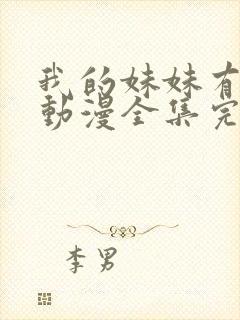 我的妹妹有
動漫全集完
李男